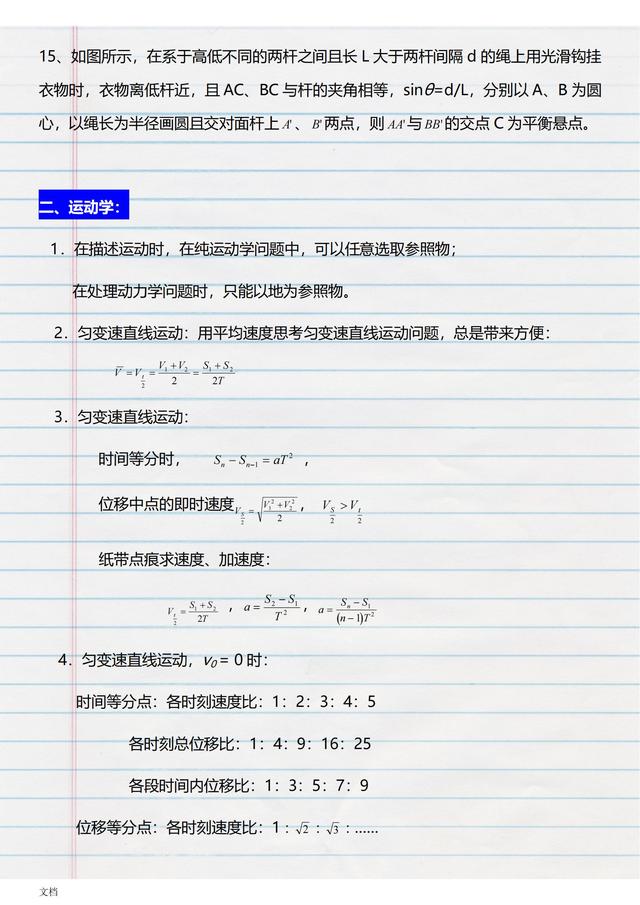 15、如图所示，在系于高低不同的两杆之间且长 L 大于两杆间隔 d 的绳上用光滑钩挂
衣物时，衣物离低杆近，且 AC、BC 与杆的夹角相等，sinθ=d/L，分别以 A、B 为圆
心，以绳长为半径画圆且交对面杆上 A'、B' 两点，则 AA' 与 BB' 的交点 C 为平衡悬点。
二、运动学：
1．在描述运动时，在纯运动学问题中，可以任意选取参照物；
在处理动力学问题时，只能以地为参照物。
2．匀变速直线运动：用平均速度思考匀变速直线运动问题，总是带来方便：
V̅ = V_{t/2} = (V₁ + V₂)/2 = (S₁ + S₂)/2T
3．匀变速直线运动：
时间等分时， Sₙ − Sₙ₋₁ = aT² ，
位移中点的即时速度 V_{S/2} = √((V₁² + V₂²)/2)， V_{S/2} > V_{t/2}
纸带点痕求速度、加速度：
V_{t/2} = (S₁ + S₂)/2T ，a = (S₂ − S₁)/T²，a = (Sₙ − S₁)/((n − 1)T²)
4．匀变速直线运动，v₀ = 0 时：
时间等分点：各时刻速度比：1：2：3：4：5
各时刻总位移比：1：4：9：16：25
各段时间内位移比：1：3：5：7：9
位移等分点：各时刻速度比：1：√2：√3：……
文档